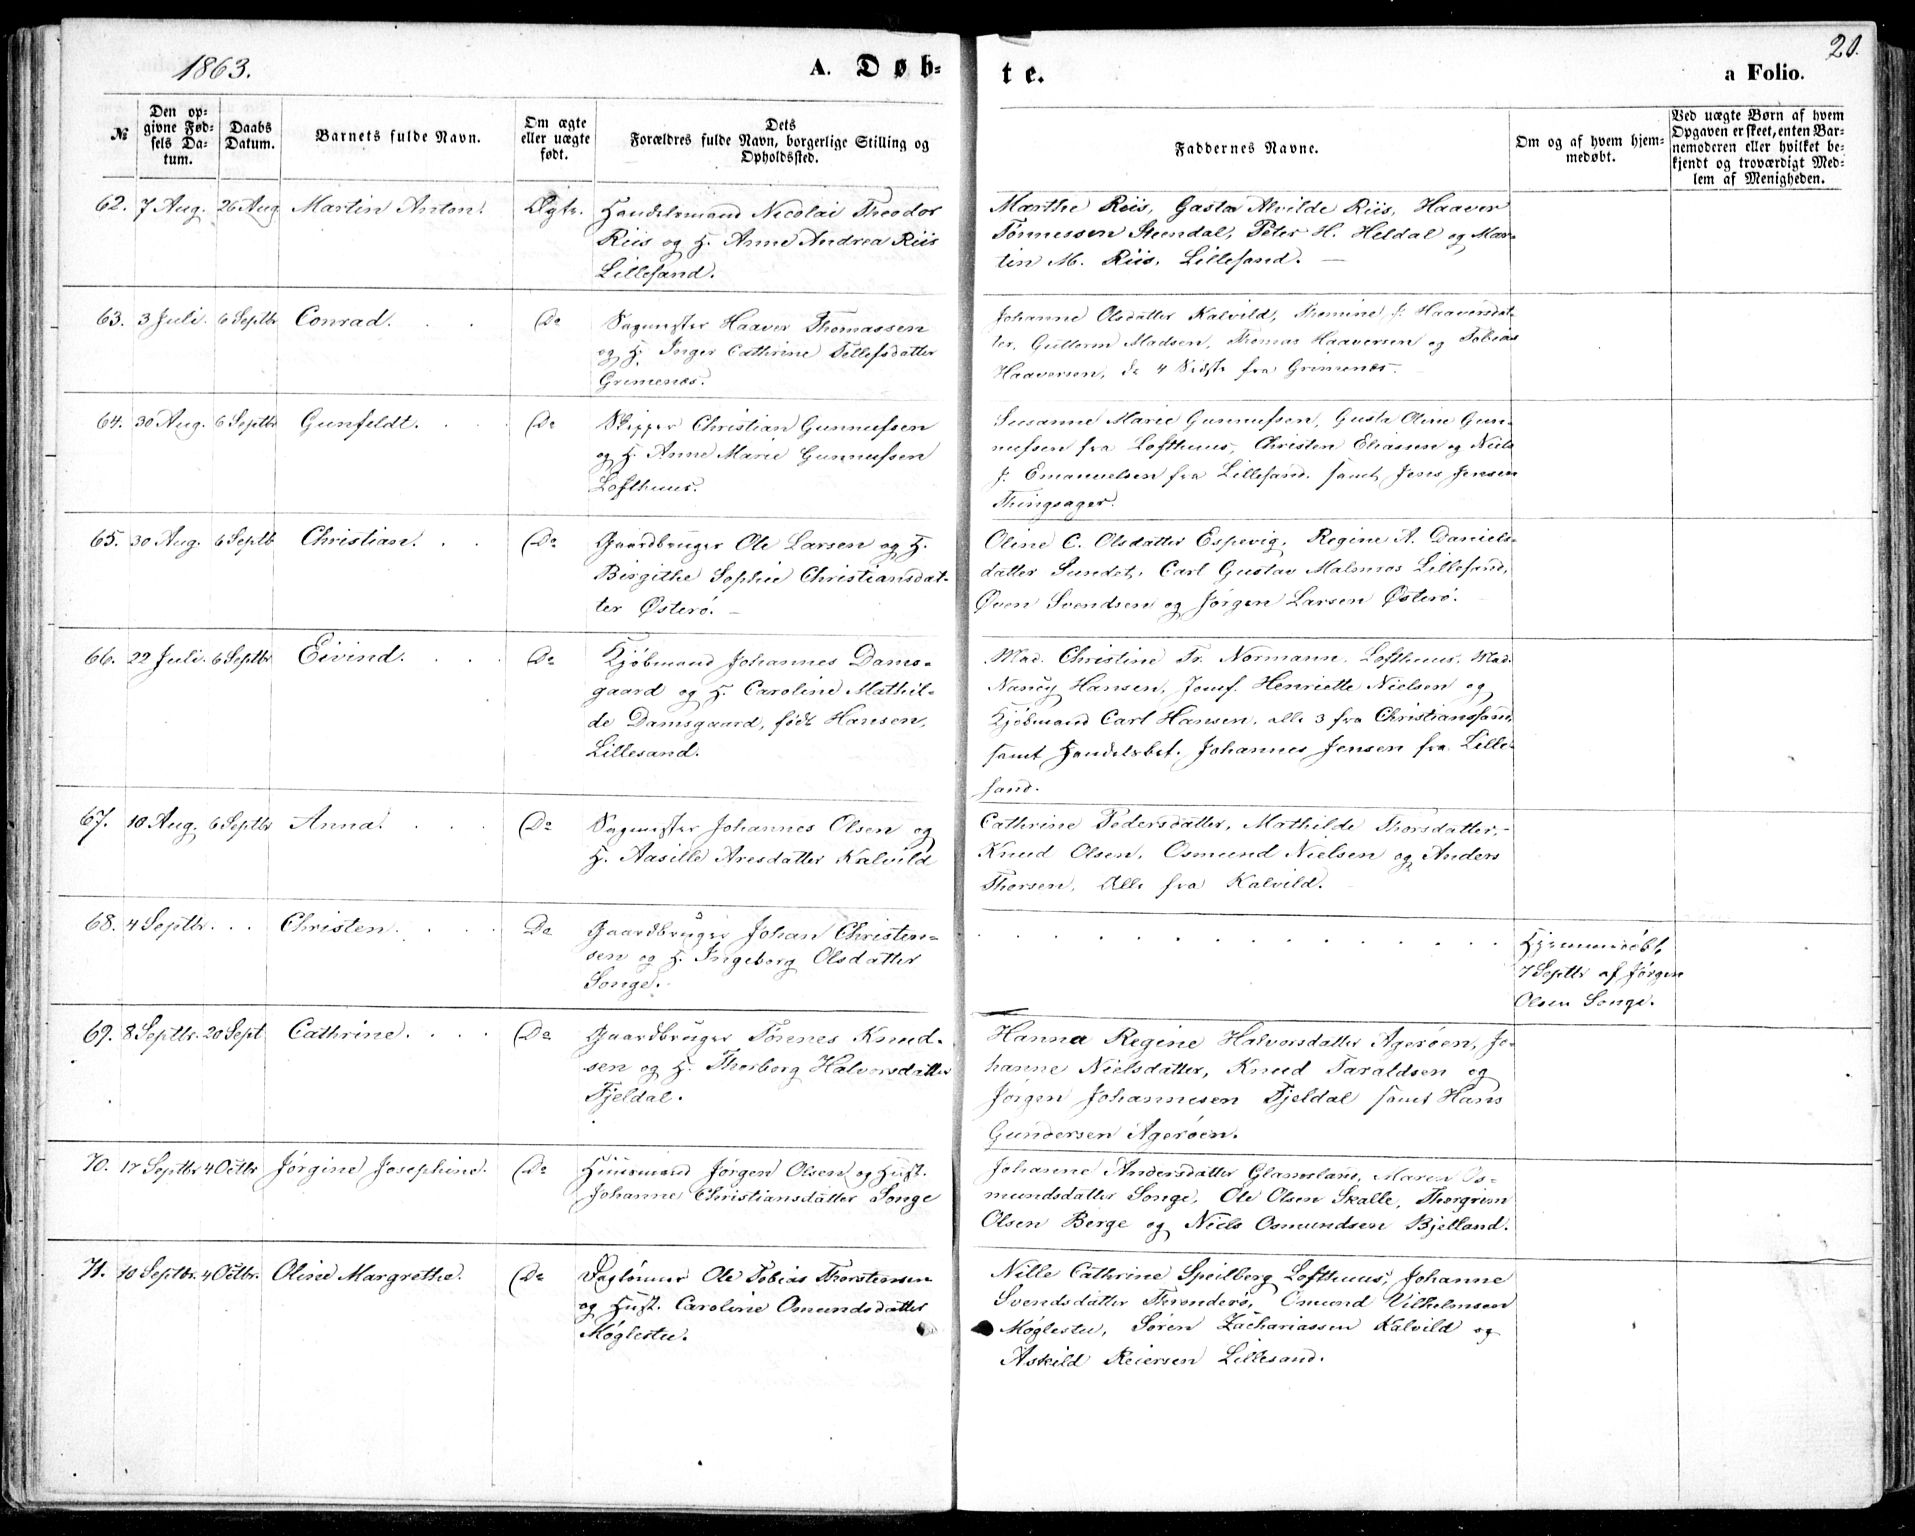 1863.
A. Døb-
te.
a Folio.
20.
№
Den op-
givne Fød-
sels Da-
tum.
Daabs
Datum.
Barnets fulde Navn.
Om ægte
eller uægte
født.
Dets
Forældres fulde Navn, borgerlige Stilling og
Opholdssted.
Faddernes Navne.
Om og af hvem hjem-
medøbt.
Ved uægte Børn af hvem
Opgaven er skeet, enten Bar-
nemoderen eller hvilket be-
kjendt og troværdigt Med-
lem af Menigheden.
62. 7 Aug. 26 Aug Martin Anton. Ægte. Handelsmand Nicolai Theodor
Riis og H. Anne Andrea Riis
Lillesand.
Marthe Riis, Gusta Alvilde Riis, Haaver
Tønnessen Steendal, Peter H. Heldal og Mar-
tin M. Riis, Lillesand. —
63. 3 Juli. 6 Septbr Conrad. Do Sagmester Haaver Thomassen
og H. Inger Cathrine Tellefsdatter
Grimenes.
Johanne Olsdatter Kalvild, Thomine Haaversdat-
ter, Guttorm Madsen, Thomas Haaversen og Tobias
Haaversen, de 4 Sidste fra Grimenes.
64. 30 Aug. 6 Septbr Gunfeldt. Do Skipper Christian Gunnufsen
og H. Anne Marie Gunnufsen
Lofthuus.
Susanne Marie Gunnufsen, Gusta Oline Gun-
nufsen fra Lofthuus, Christen Eliassen og Niels
J. Emanuelsen fra Lillesand samt Jens Jensen
Thingsager.
65. 30 Aug. 6 Septb Christian. Do Gaardbruger Ole Larsen og H.
Birgithe Sophie Christiansdat-
ter Østerø. —
Oline C. Olsdatter Espevig, Regine A. Daniels-
datter Sundet, Carl Gustav Malmros Lillesand,
Øven Svendsen og Jørgen Larsen Østerø.
66. 22 Juli. 6 Septbr Eivind. Do Kjøbmand Johannes Dams-
gaard og H. Caroline Mathil-
de Damsgaard, født Hansen,
Lillesand.
Mad. Christine Fr. Normann, Lofthuus, Mad.
Nancy Hansen, Jomf. Henriette Nielsen og
Kjøbmand Carl Hansen, alle 3 fra Christianssand,
samt Handelsbet. Johannes Jensen fra Lille-
sand.
67. 10 Aug. 6 Septbr Anna. Do Sagmester Johannes Olsen og
H. Aasille Aresdatter Kalvild
Cathrine Pedersdatter, Mathilde Thorsdatter,
Knud Olsen, Osmund Nielsen og Anders
Thorsen, Alle fra Kalvild.
68. 4 Septbr. Christen. Do Gaardbruger Johan Christen-
sen og H. Ingeborg Olsdatter
Songe.
Hjemmedøbt
7 Septbr af Jørgen
Olsen Songe.
69. 8 Septbr. 20 Sept Cathrine. Do Gaardbruger Tønnes Knud-
sen og H. Thorborg Halvorsdatter
Fjeldal.
Hanna Regine Halvorsdatter Agerøen, Jo-
hanne Nielsdatter, Knud Taraldsen og
Jørgen Johannesen Fjeldal samt Hans
Gundersen Agerøen.
70. 17 Septbr 4 Octbr Jørgine Josephine. Do Huusmand Jørgen Olsen og Hust.
Johanne Christiansdatter Songe
Johanne Andersdatter Glamsland, Maren Os-
mundsdatter Songe, Ole Olsen Skalle, Thorgrim
Olsen Berge og Niels Osmundsen Bjelland.
71. 10 Septbr. 4 Octbr. Oline Margrethe. Do Daglønner Ole Tobias Thorstensen
og Hust. Caroline Osmundsdatter
Møglestu.
Nille Cathrine Speilberg Lofthuus, Johanne
Svendsdatter Thronderø, Osmund Vilhelmsen
Møglestu, Søren Zachariassen Kalvild og
Askild Reiersen Lillesand.